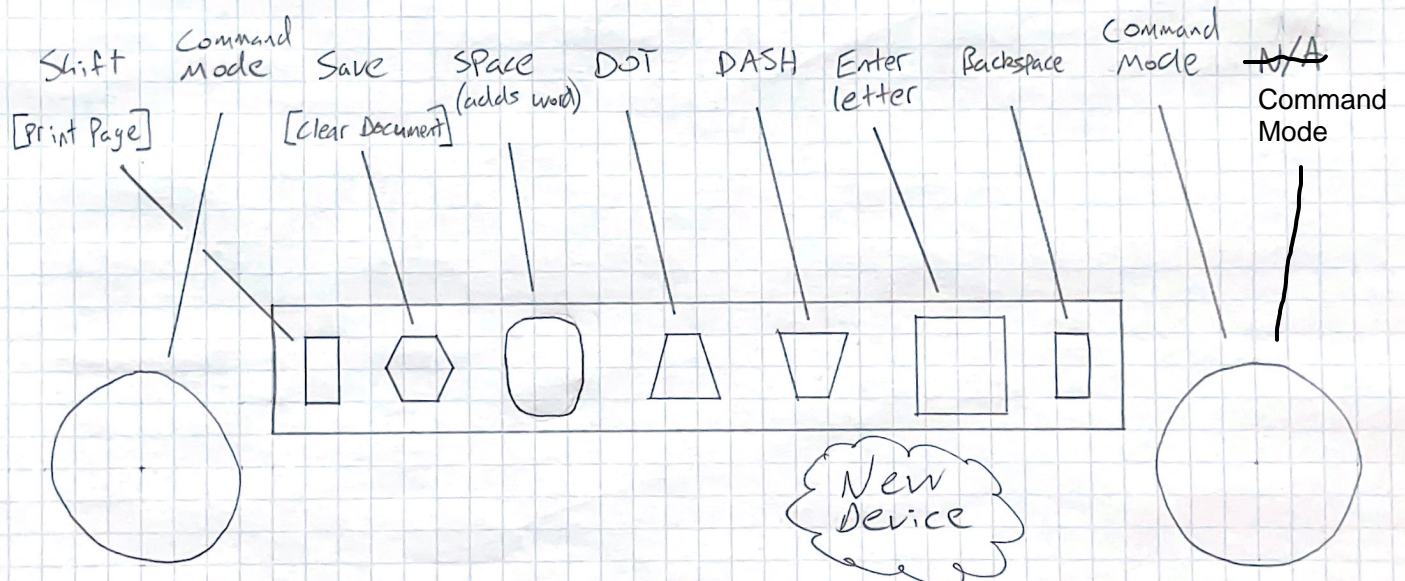 Shift
Command
Mode
Save
SPace
(adds word)
DOT
DASH
Enter
letter
Backspace
Command
Mode
N/A
Command
Mode
[Print Page]
[Clear Document]
New
Device